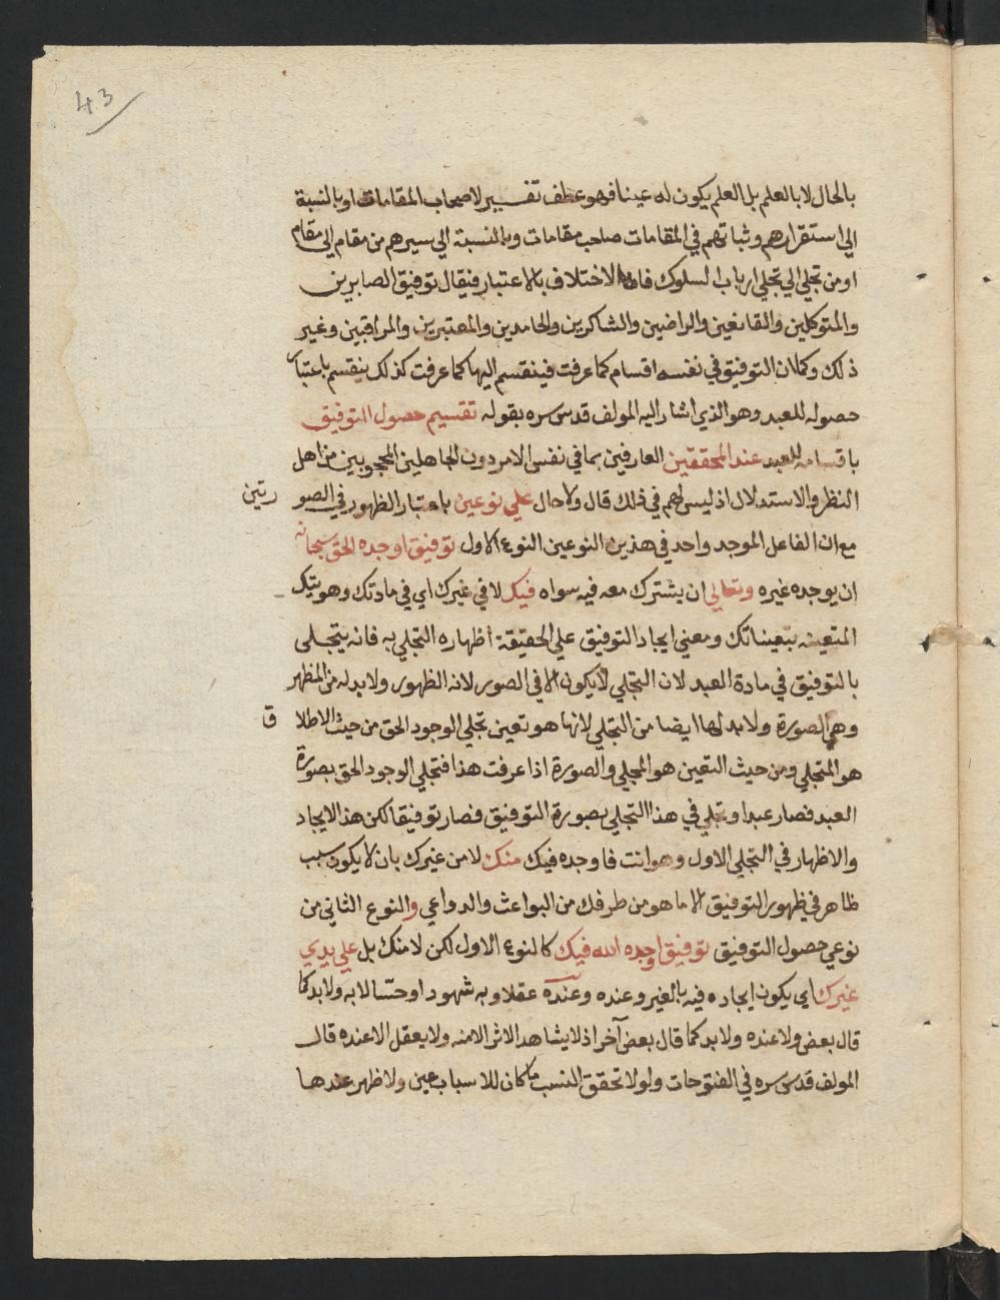 43
بالحال لا بالعلم بل العلم يكون له عينا فهو عطف تفسير لاصحاب المقامات او بالنسبة
الي استقرارهم وثباتهم في المقامات صاحب مقامات وبالنسبة الي سيرهم من مقام الي مقام
او من تجلي الي تجلي ارباب السلوك فانه الاختلاف بالاعتبار فيقال توفيق الصابرين
والمتوكلين والقانعين والراضين والشاكرين والحامدين والمعتبرين والمراقبين وغير
ذلك وكما ان التوفيق في نفسه اقسام كما عرفت فينقسم اليها كما عرفت كذلك ينقسم باعتبار
حصوله للعبد وهو الذي اشار اليه المولف قدس سره بقوله تقسيم حصول التوفيق
باقسامه للعبد عند المحققين العارفين بما في نفس الامر دون الجاهلين المحجوبين من اهل
النظر والاستدلال اذ ليس لهم في ذلك قال ولا حال علي نوعين باعتبار الظهور في الصو رتين
مع ان الفاعل الموجد واحد في هذين النوعين النوع الاول توفيق اوجده الحق سبحانه
ان يوجده غيره وتعالي ان يشترك معه فيه سواه فيك لا في غيرك اي في مادتك وهويتك
المتعينه بتعيناتك ومعني ايجاد التوفيق علي الحقيقة اظهاره التجلي به فانه يتجلي
بالتوفيق في مادة العبد لان التجلي لا يكون الا في الصور لانه الظهور ولا بد له من المظهر
وهي الصورة ولا بد لها ايضا من التجلي لانها هو تعين تجلي الوجود الحق من حيث الاطلا ق
هو المتجلي ومن حيث التعين هو المجلي والصورة اذا عرفت هذا فتجلي الوجود الحق بصورة
العبد فصار عبدا وتجلي في هذا التجلي بصورة التوفيق فصار توفيقا لكن هذا الايجاد
والاظهار في التجلي الاول وهو انت فاوجده فيك منك لا من غيرك بان لا يكون سبب
ظاهر في ظهور التوفيق الا ما هو من طرفك من البواعث والدواعي والنوع الثاني من
نوعي حصول التوفيق توفيق اوجده الله فيك كالنوع الاول لكن لا منك بل علي يدي
غيرك اي يكون ايجاده فيه بالغير وعنده وعنده عقلا وبه شهودا وحسا لا به ولا بد كما
قال بعض ولا عنده ولا بد كما قال بعض آخر اذ لا يشاهد الاثر الا منه ولا يعقل الا عنده قال
المولف قدس سره في الفتوحات ولولا تحقق النسب ما كان للاسباب عين ولا ظهر عندها